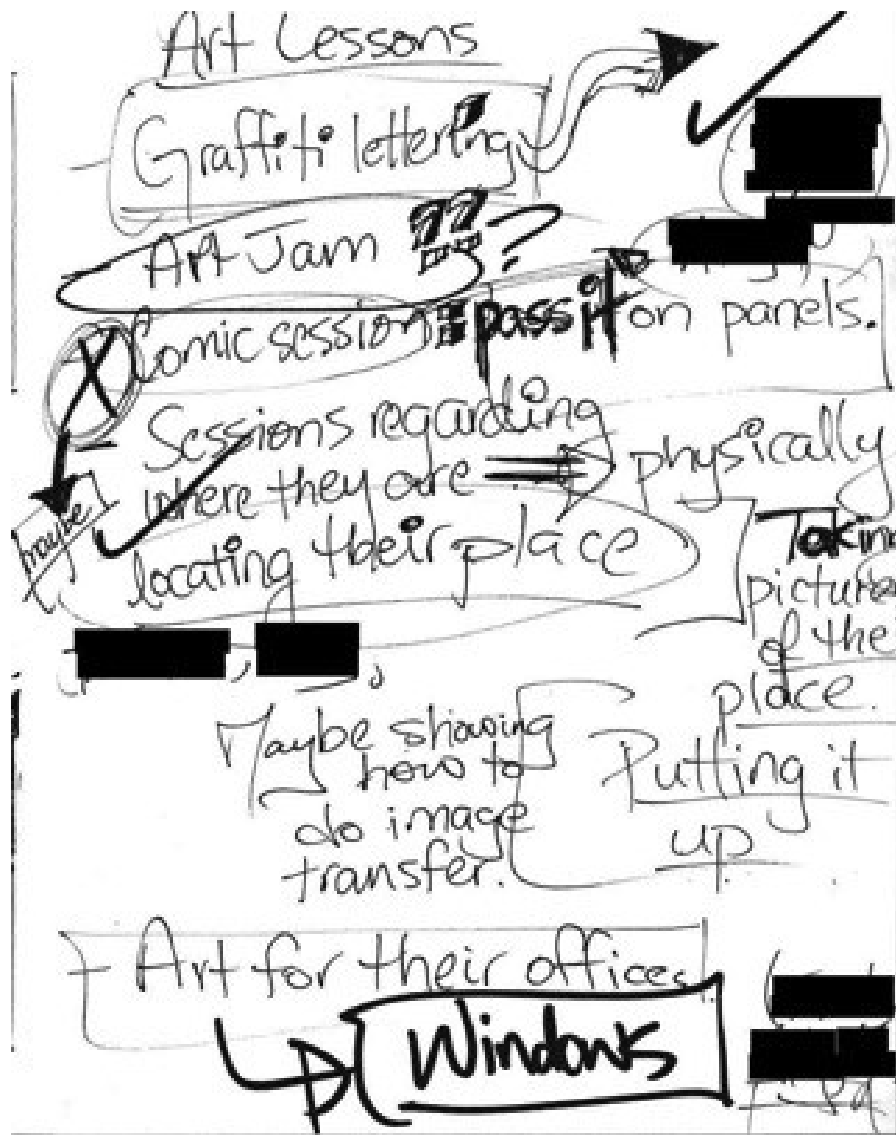 Art Lessons
Graffiti lettering
Art Jam ?? ?
Comic session: pass it on panels.
- Sessions regarding
where they are
physically
locating their place
maybe
Taking
pictures
of the
place.
Maybe showing
how to
do image
transfer.
Putting it
up
- Art for their offices
Windows